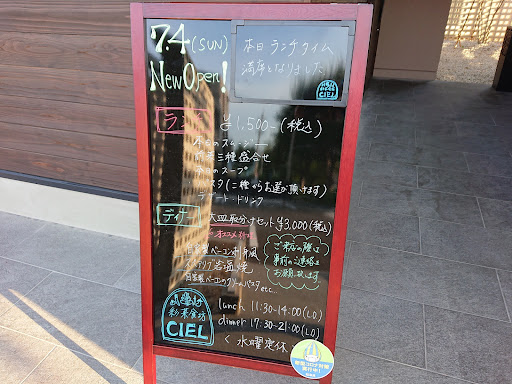 7.4 (SUN)
New Open!
本日 ランチタイム
満席となりました
CIEL
ランチ ¥1,500-(税込)
本日のスムージー
前菜三種盛合せ
スープ
パスタ(二種からお選び頂けます)
デザート・ドリンク
ディナー 大皿取分けセット ¥3,000(税込)
オススメ
自家製ベーコン
岩塩焼
自家製ベーコンのクリームパスタ etc...
ご来店の際は
事前のご連絡を
お願い致します
彩菜食坊
CIEL
lunch 11:30-14:00(LO)
dinner 17:30-21:00(LO)
< 水曜定休 >